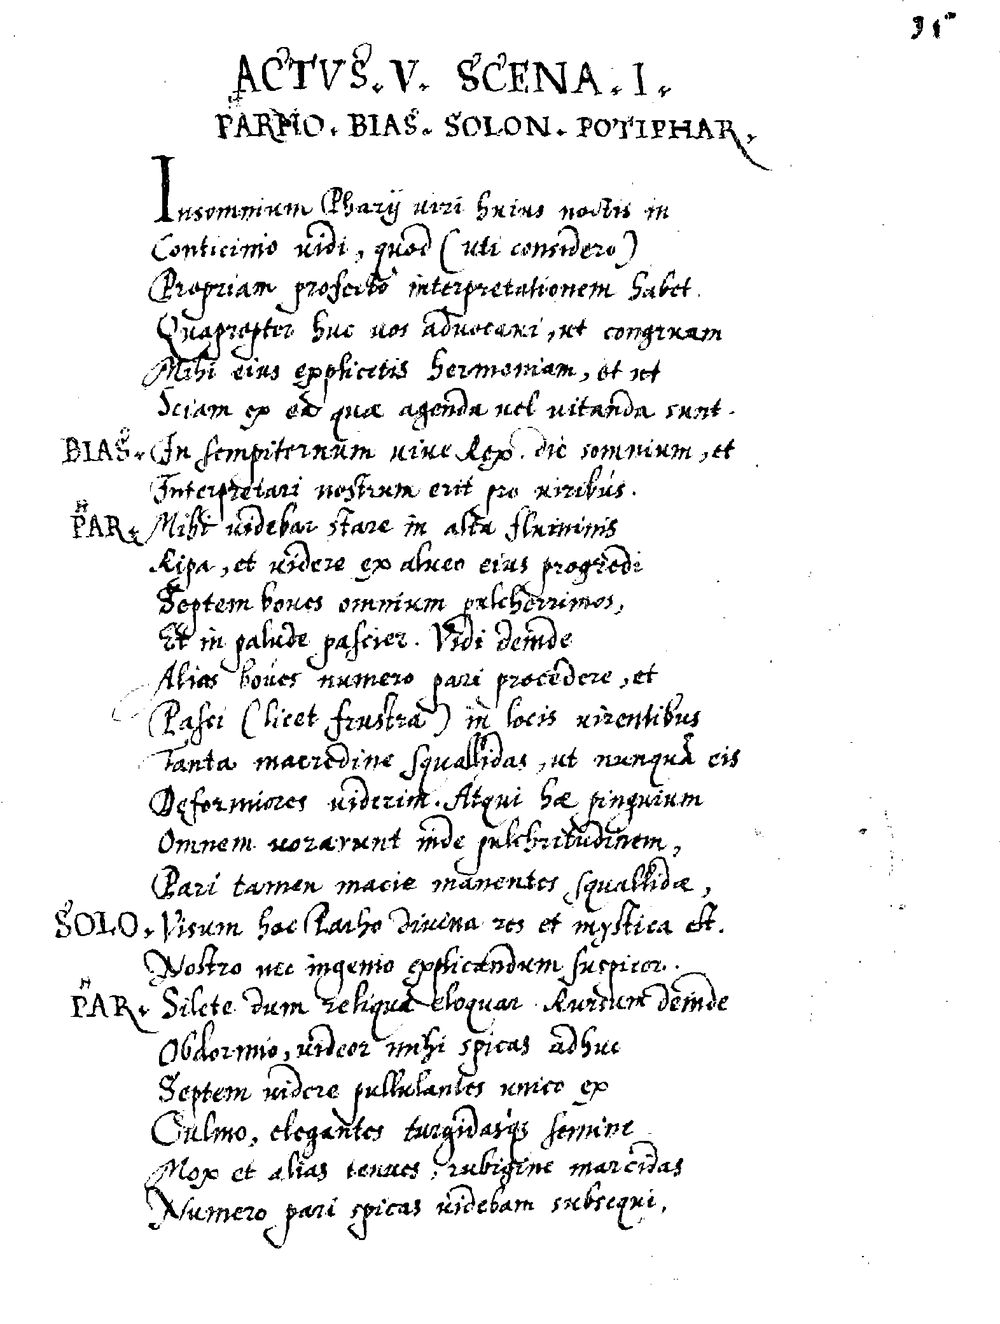 35
ACTVS. V. SCENA. I.
PARHO. BIAS. SOLON. POTIPHAR.
Insomnium Pharij uiri huius noctis in
Conticinio uidi, quod (uti considero)
Propriam profectò interpretationem habet.
Quapropter huc uos aduocaui, ut congruam
Mihi eius explicetis hermoniam, et ut
Sciam ex ea quae agenda uel uitanda sunt.
BIAS. In sempiternum uiue Rex. dic somnium, et
Interpretari nostrum erit pro uiribus.
PAR. Mihi uidebar stare in alta fluminis
Ripa, et uidere ex alueo eius progredi
Septem boues omnium pulcherrimos,
Et in palude pascier. Vidi deinde
Alias boues numero pari procedere, et
Pasci (licet frustra) in locis uirentibus
Tanta macredine squallidas, ut nunquā eis
Deformiores uiderim. Atqui hae pinguium
Omnem uorarunt inde pulchritudinem,
Pari tamen macie manentes squallidae,
SOLO. Visum hoc Parho diuina res et mystica est.
Nostro nec ingenio explicandum suspicor.
PAR. Silete dum reliqua eloquar. Rursum deinde
Obdormio, uideor mihi spicas adhuc
Septem uidere pullulantes unico ex
Culmo, elegantes turgidasq; semine
Mox et alias tenues, rubigine marcidas
Numero pari spicas uidebam subsequi,